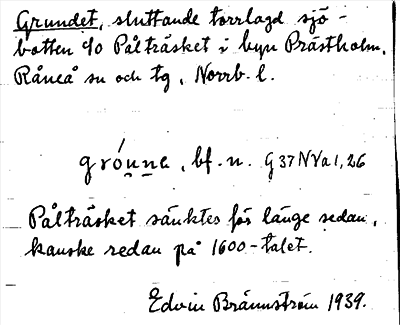 Grundet, sluttande torrlagd sjö-
botten %o Pålträsket i byn Prästholm,
Råneå sn och tg, Norrb. l.
grón̯n̯a, bf. n. G37NVa1,26
Pålträsket sänktes för länge sedan,
kanske redan på 1600-talet.
Edvin Brännström 1939.